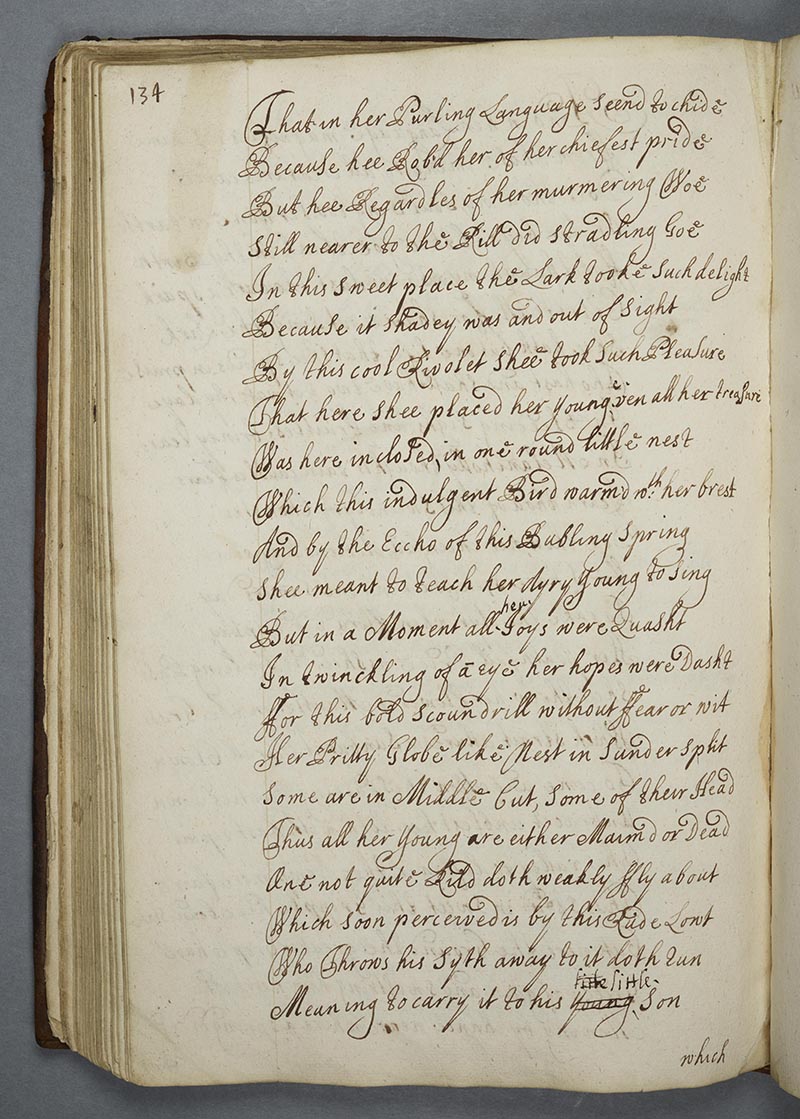 134
That in her Purling Language seend to chide
Because hee Rob'd her of her chiefest pride
But hee Regardles of her murmering Woe
Still nearer to the Rill did stradling Goe
In this sweet place the Lark tooke such delight
Because it shadey was and out of sight
By this cool Rivolet shee took such Pleasure
That here shee placed her young even all her treasure
Was here inclosed, in one round little nest
Which this indulgent Bird warmd wth. her brest
And by the Eccho of this Bubling spring
Shee meant to teach her Ayry Young to sing
But in a Moment all her Joys were Quasht
In twinckling of ā eye her hopes were Dasht
ffor this bold scoundrill without ffear or wit
Her Pritty Globe like Nest in sunder split
Some are in Middle Cut, some of their Head
Thus all her Young are either Maimd or Dead
One not quite Kild doth weakly ffly about
Which soon perceived is by this Rude Lowt
Who Throws his Syth away to it doth run
Meaning to carry it to his little Son
which